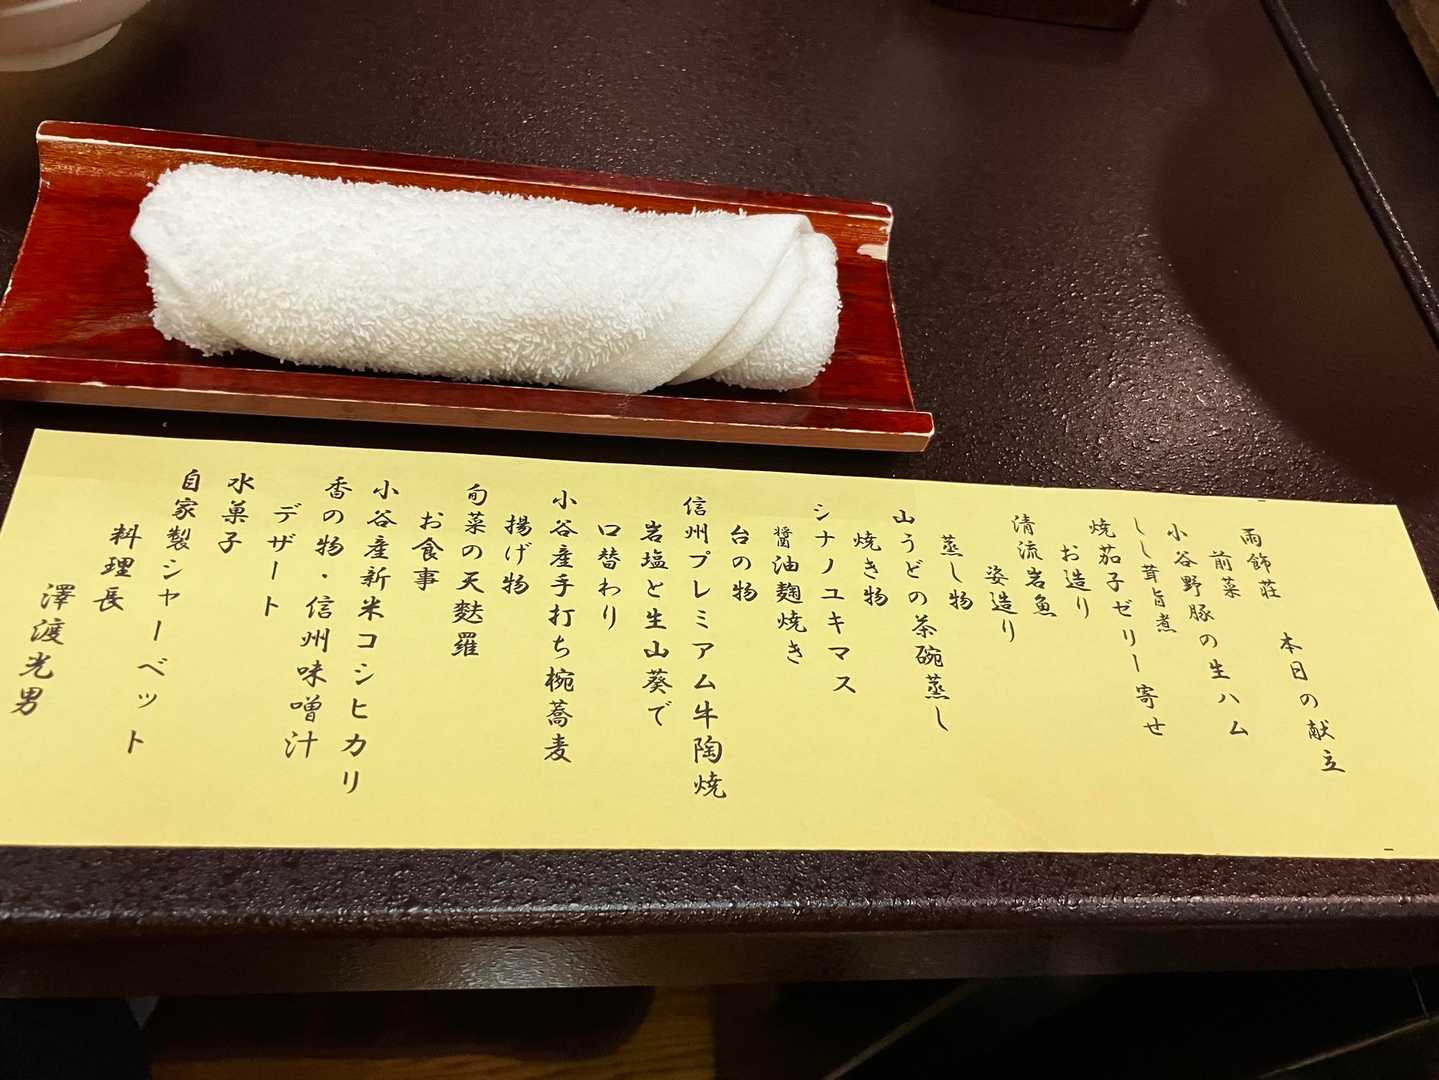 雨飾荘　本日の献立
前菜
小谷野豚の生ハム
しし茸旨煮
焼茄子ゼリー寄せ
お造り
清流岩魚
姿造り
蒸し物
山うどの茶碗蒸し
焼き物
シナノユキマス
醤油麹焼き
台の物
信州プレミアム牛陶焼
岩塩と生山葵で
口替わり
小谷産手打ち椀蕎麦
揚げ物
旬菜の天麩羅
お食事
小谷産新米コシヒカリ
香の物・信州味噌汁
デザート
水菓子
自家製シャーベット
料理長
澤渡光男